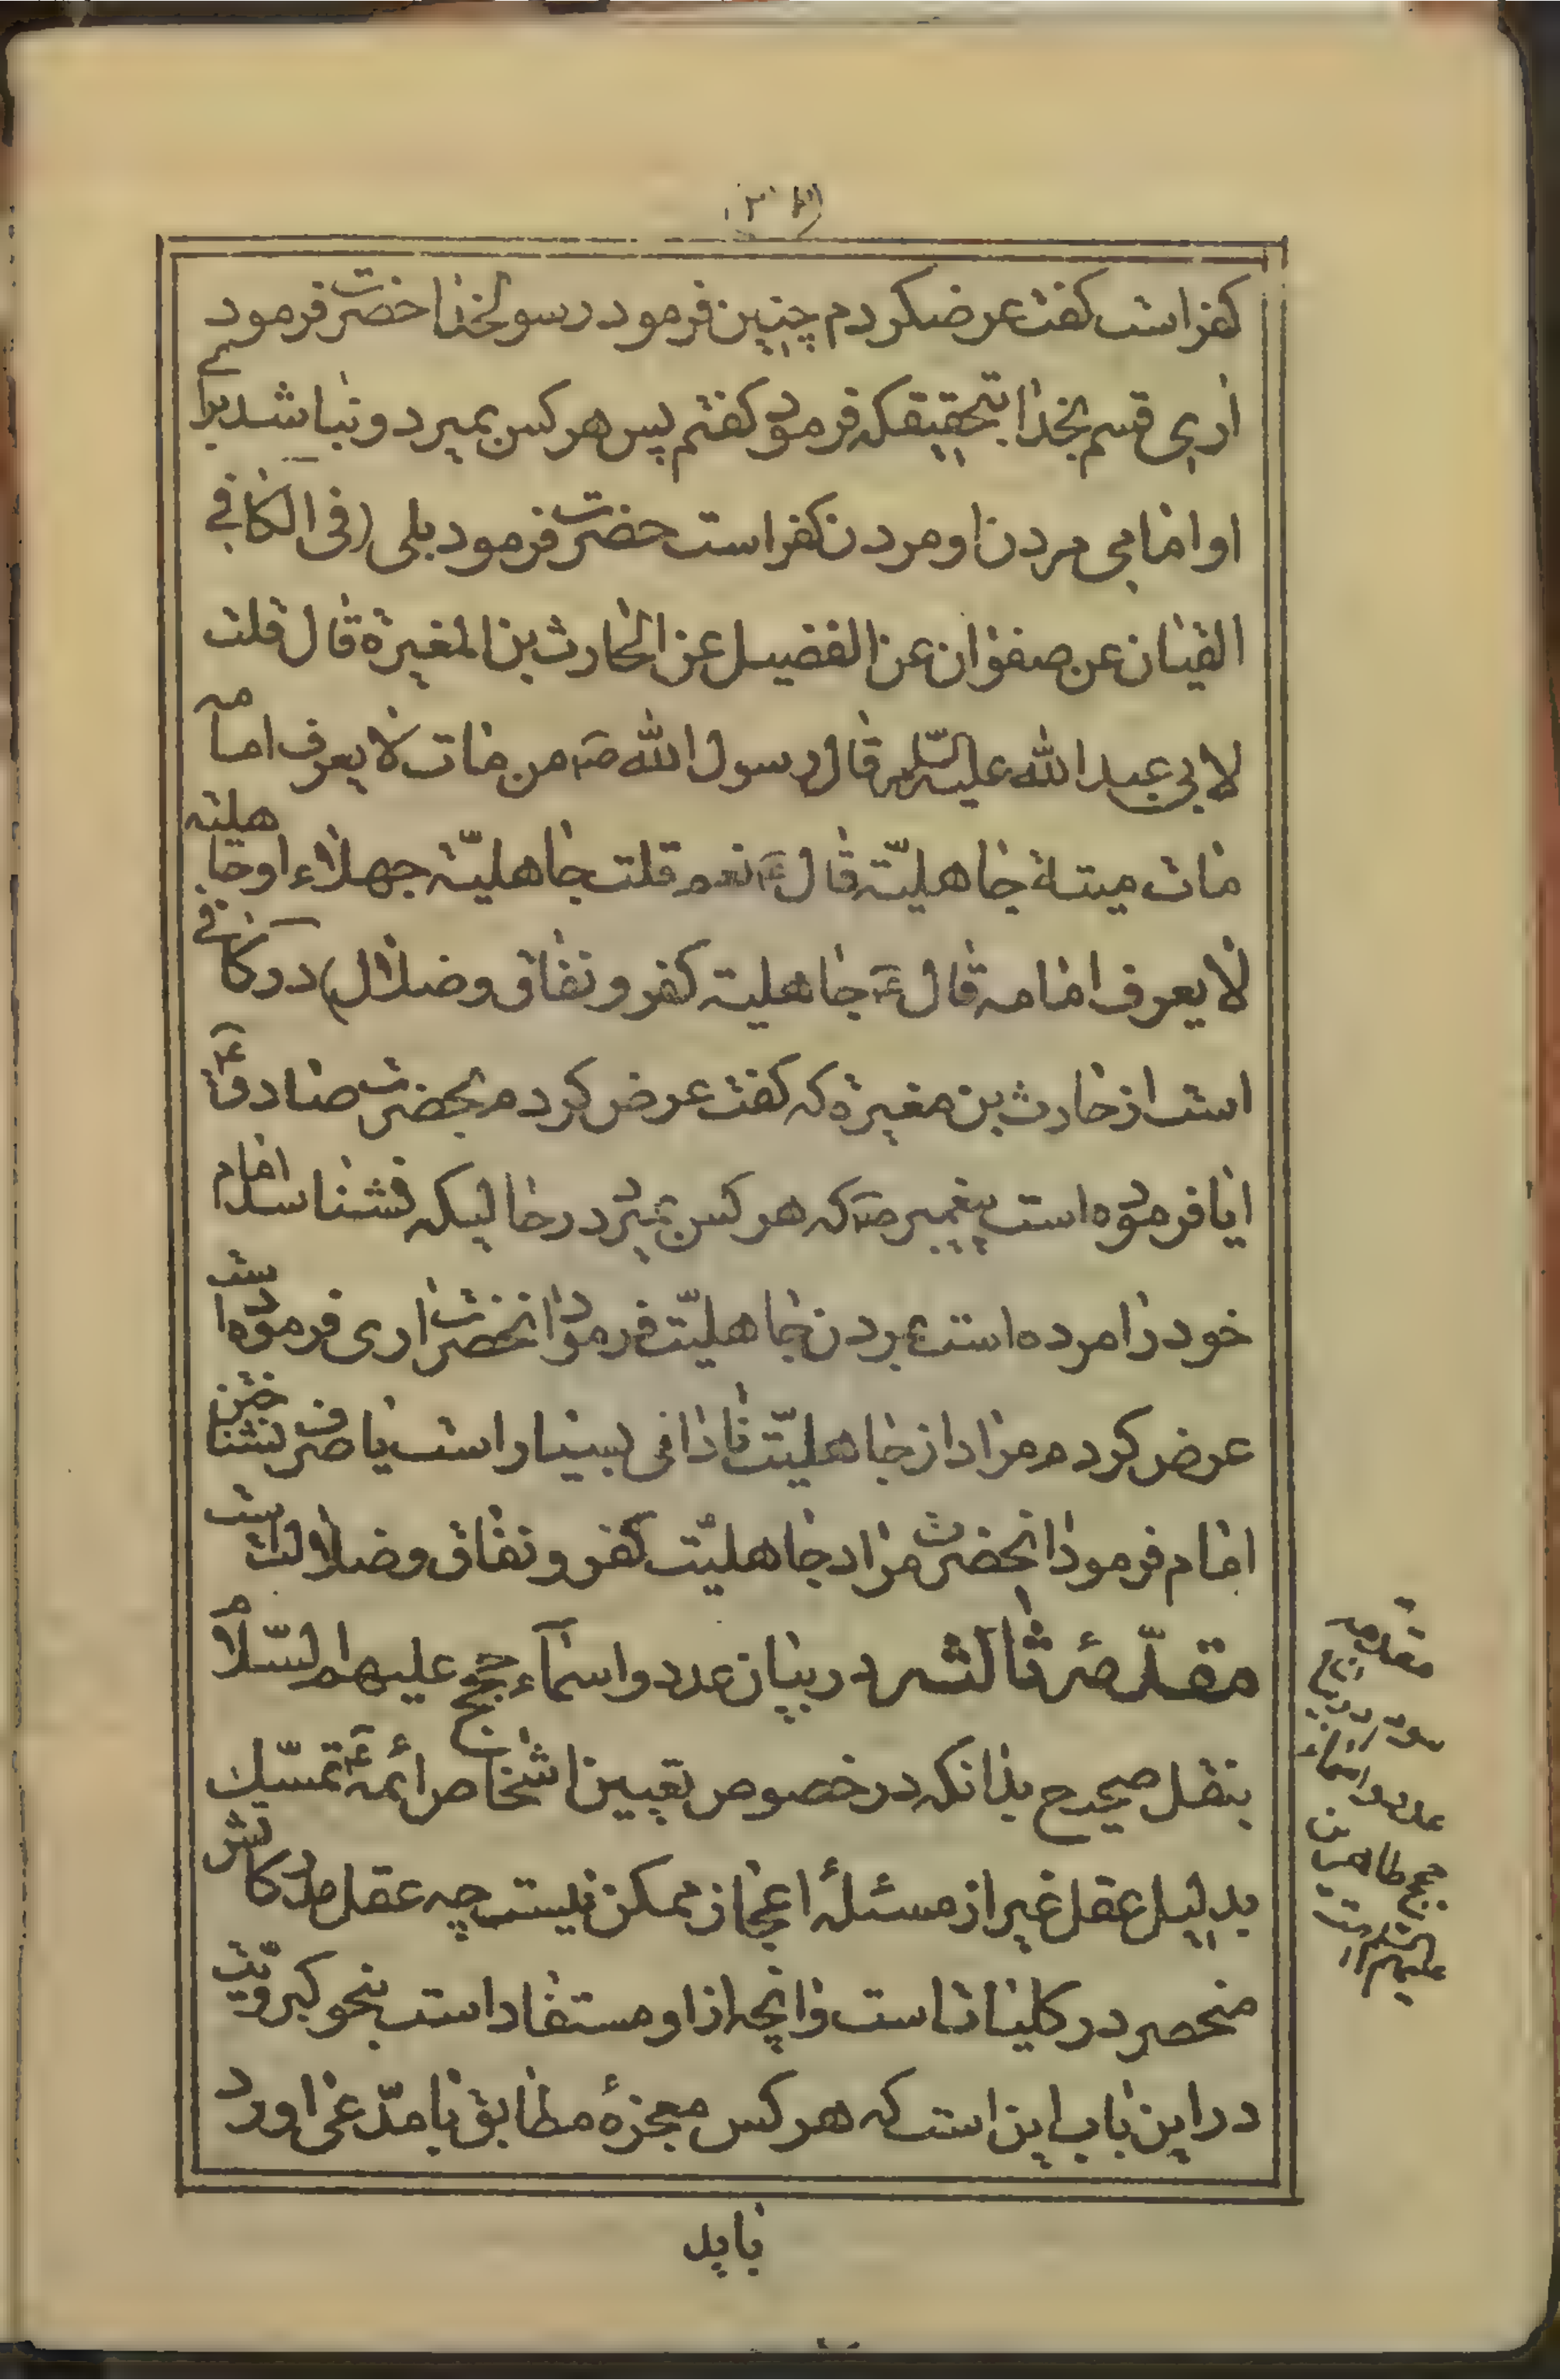 کفر است کفت عرضکردم چنین فرمود رسولخدا حضرت فرمود
اری قسم بخدا بتحقیقکه فرمود کفتم پس هر کس بمیرد و نباشد برای
او امامی مردن او مردن کفر است حضرت فرمود بلی (فی الکافی
عن صفوان عن الفضیل عن الحارث بن المغیرة قال قلت
لابی عبد الله علیه السّلام قال رسول الله ص من مات لا یعرف امامه
مات میتة جاهلیّة قال ع نعم قلت جاهلیّة جهلاء او جاهلیة
لا یعرف امامه قال ع جاهلیة کفر و نفاق و ضلال) در کافی
است از حارث بن مغیرة که کفت عرض کردم بحضرت صادق ع
ایا فرموده است پیغمبر ص که هر کس بمیرد در حالیکه نشناسد امام
خود را مرده است بمردن جاهلیّت فرمود انحضرت اری فرموده است
عرض کردم مراد از جاهلیّت نادانی بسیار است یا صرف نشناختن
امام فرمود انحضرت مراد جاهلیّت کفر و نفاق و ضلالت است
مقدّمهٔ ثالثه در بیان عدد و اسماء حجج علیهم السّلام
بنقل صحیح بدانکه در خصوص تعیین اشخاص ائمه ع تمسّک
بدلیل عقل غیر از مسئلهٔ اعجاز ممکن نیست چه عقل مدرکاتش
منحصر در کلیات است و انچه از او مستفاد است بنحو کبرویّت
در این باب این است که هر کس معجزهٔ مطابق با مدّعی اورد
باید
مقدمه
سوم در بیان
عدد و اسماء
حجج طاهرین
علیهم السلام است